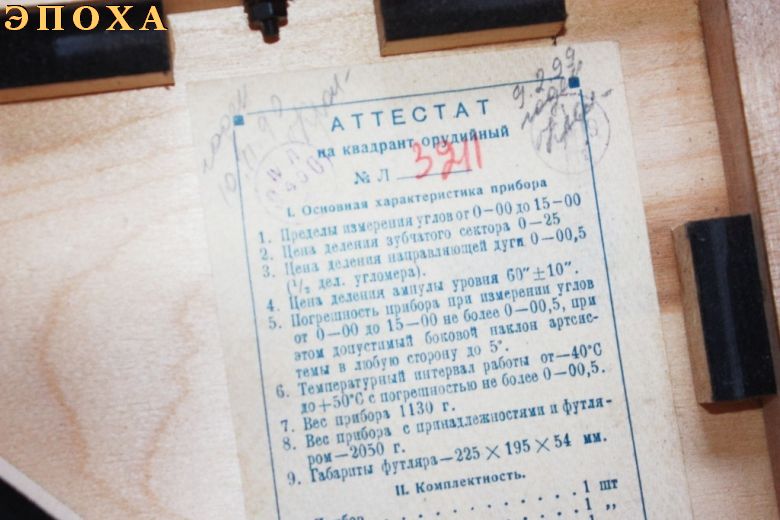 ЭПОХА
годен
9.2.99
годен
АТТЕСТАТ
на квадрант орудийный
№ Л 3911
I. Основная характеристика прибора
1. Пределы измерения углов от 0—00 до 15—00
2. Цена деления зубчатого сектора 0—25
3. Цена деления направляющей дуги 0—00,5
(1/2 дел. угломера).
4. Цена деления ампулы уровня 60″±10″.
5. Погрешность прибора при измерении углов
от 0—00 до 15—00 не более 0—00,5, при
этом допустимый боковой наклон артсис-
темы в любую сторону до 5°.
6. Температурный интервал работы от—40°С
до+50°С с погрешностью не более 0—00,5.
7. Вес прибора 1130 г.
8. Вес прибора с принадлежностями и футля-
ром—2050 г.
9. Габариты футляра—225×195×54 мм.
II. Комплектность.
1 шт
1 „